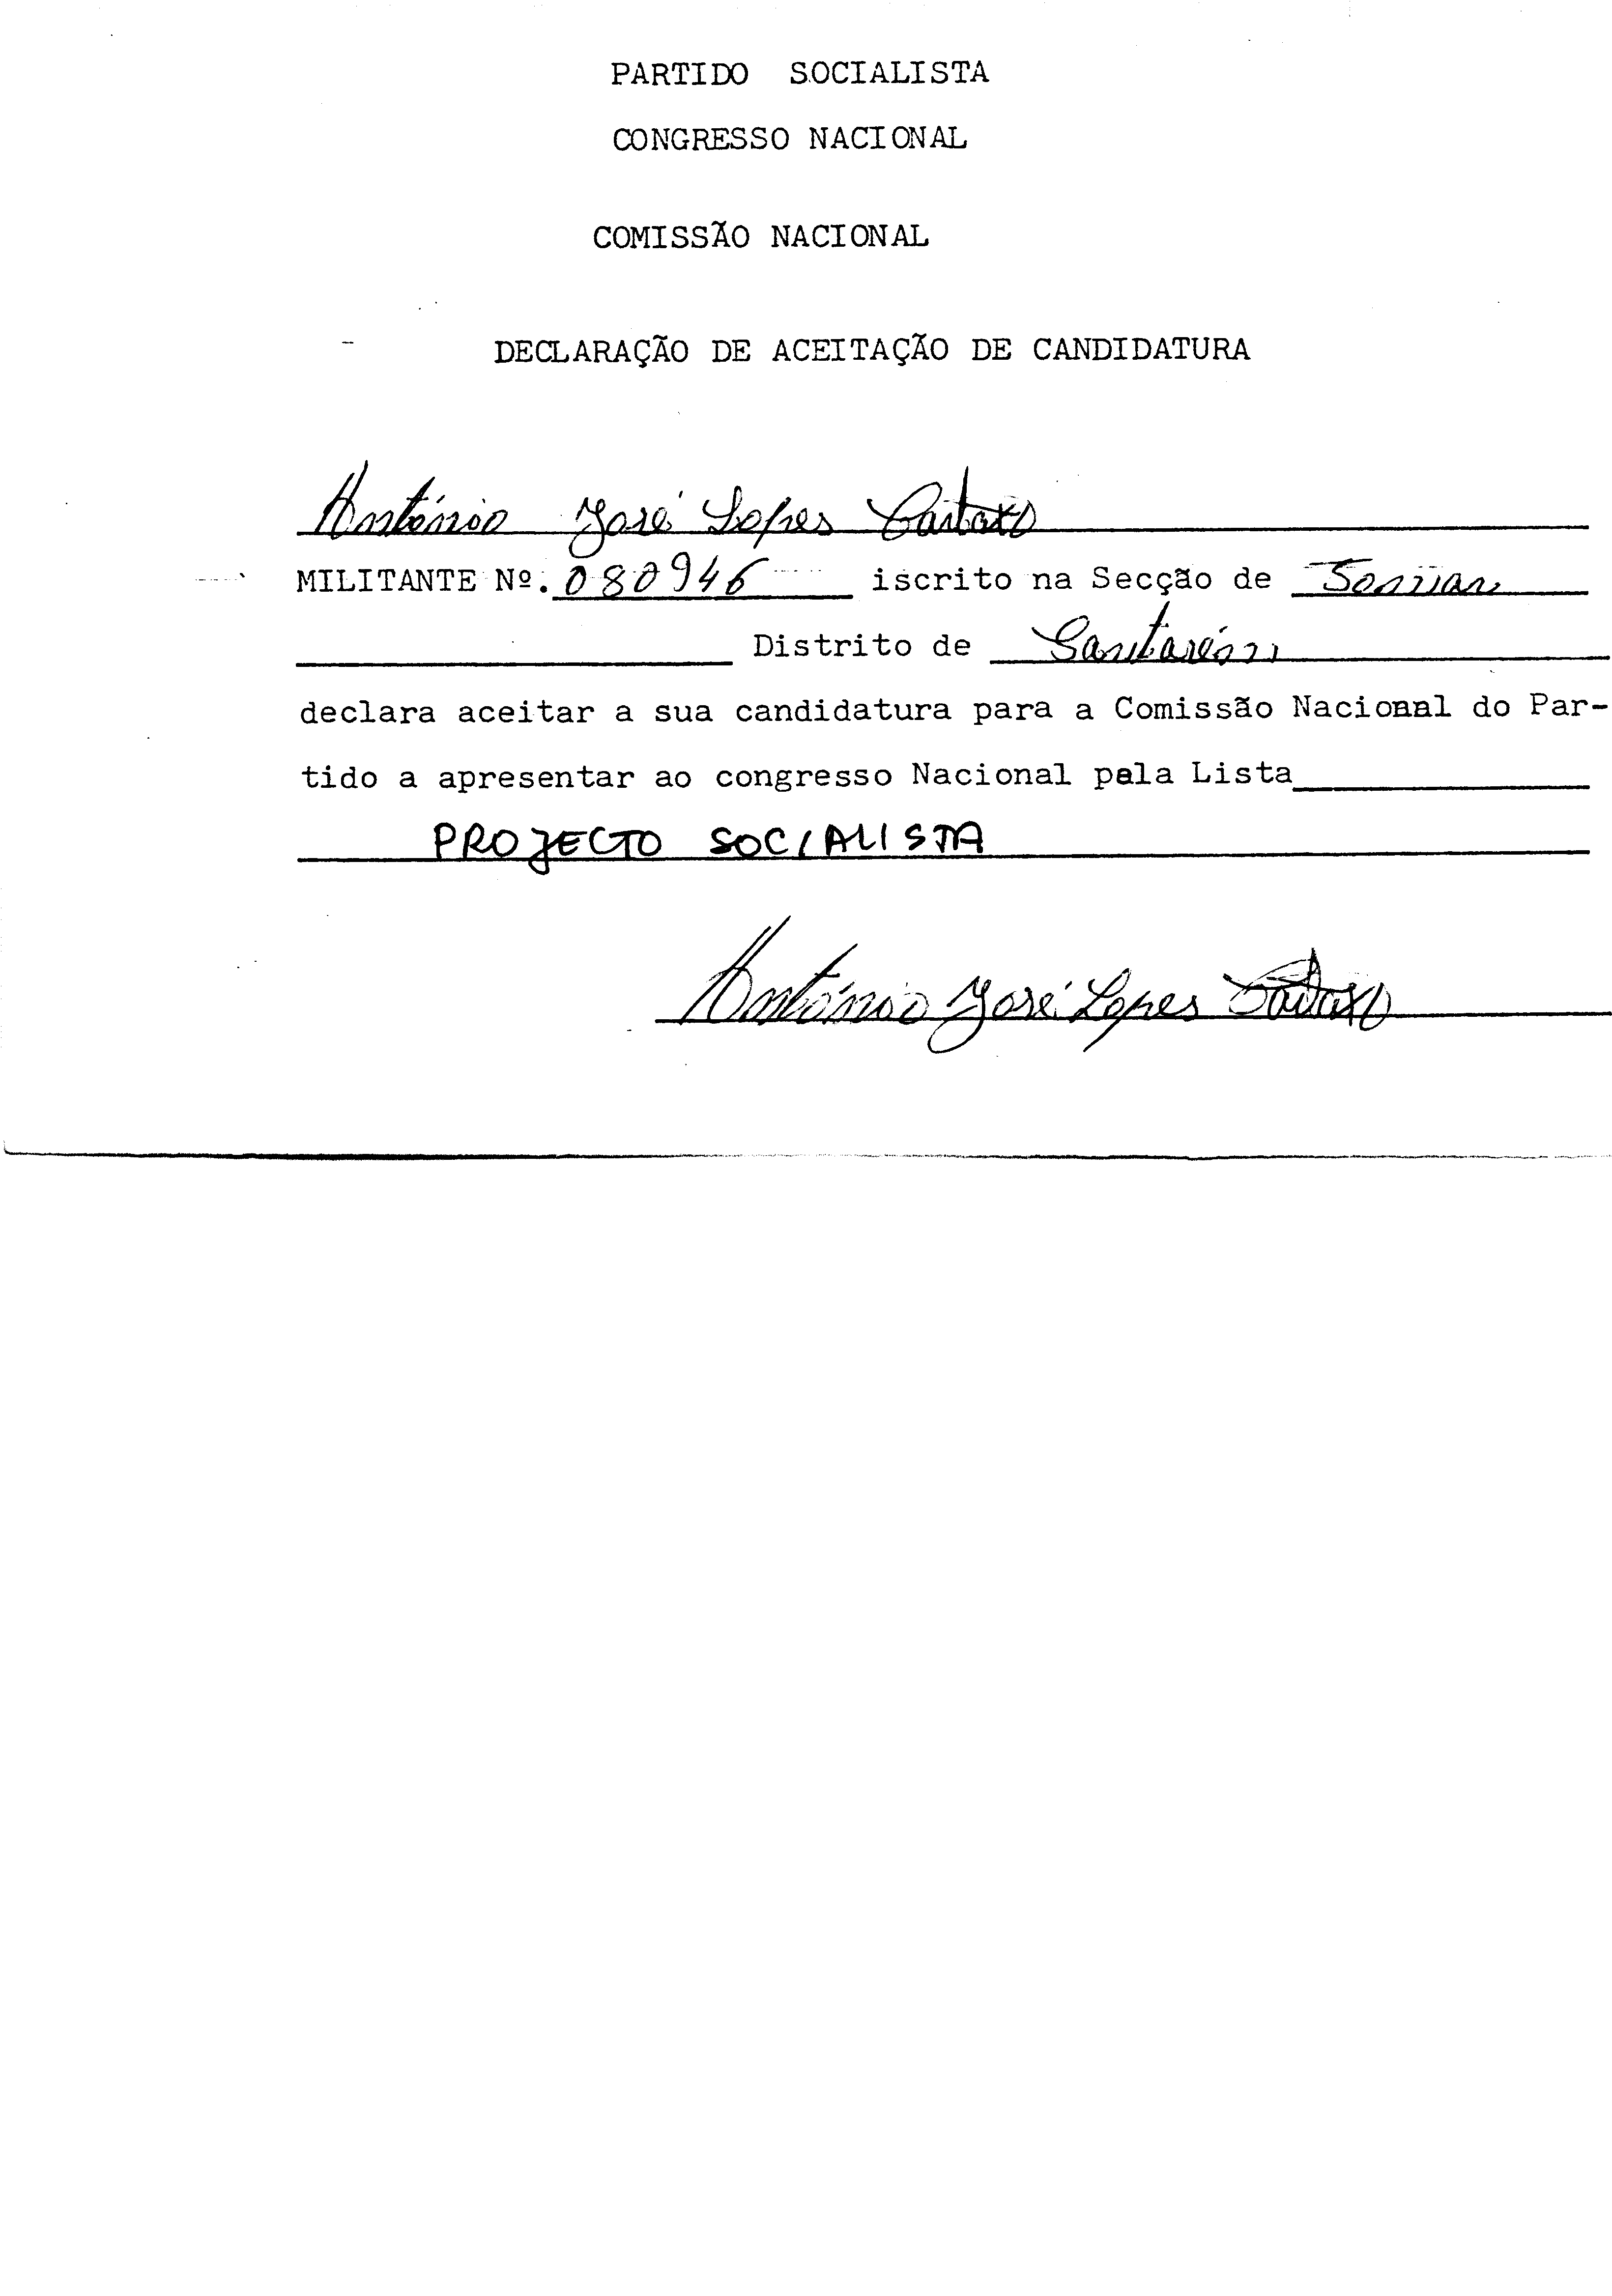 PARTIDO SOCIALISTA
CONGRESSO NACIONAL
COMISSÃO NACIONAL
DECLARAÇÃO DE ACEITAÇÃO DE CANDIDATURA
António José Lopes Cartaxo
MILITANTE Nº. 080946 iscrito na Secção de
Distrito de Santarém
declara aceitar a sua candidatura para a Comissão Nacional do Par-
tido a apresentar ao congresso Nacional pela Lista
PROJECTO SOCIALISTA
António José Lopes Cartaxo